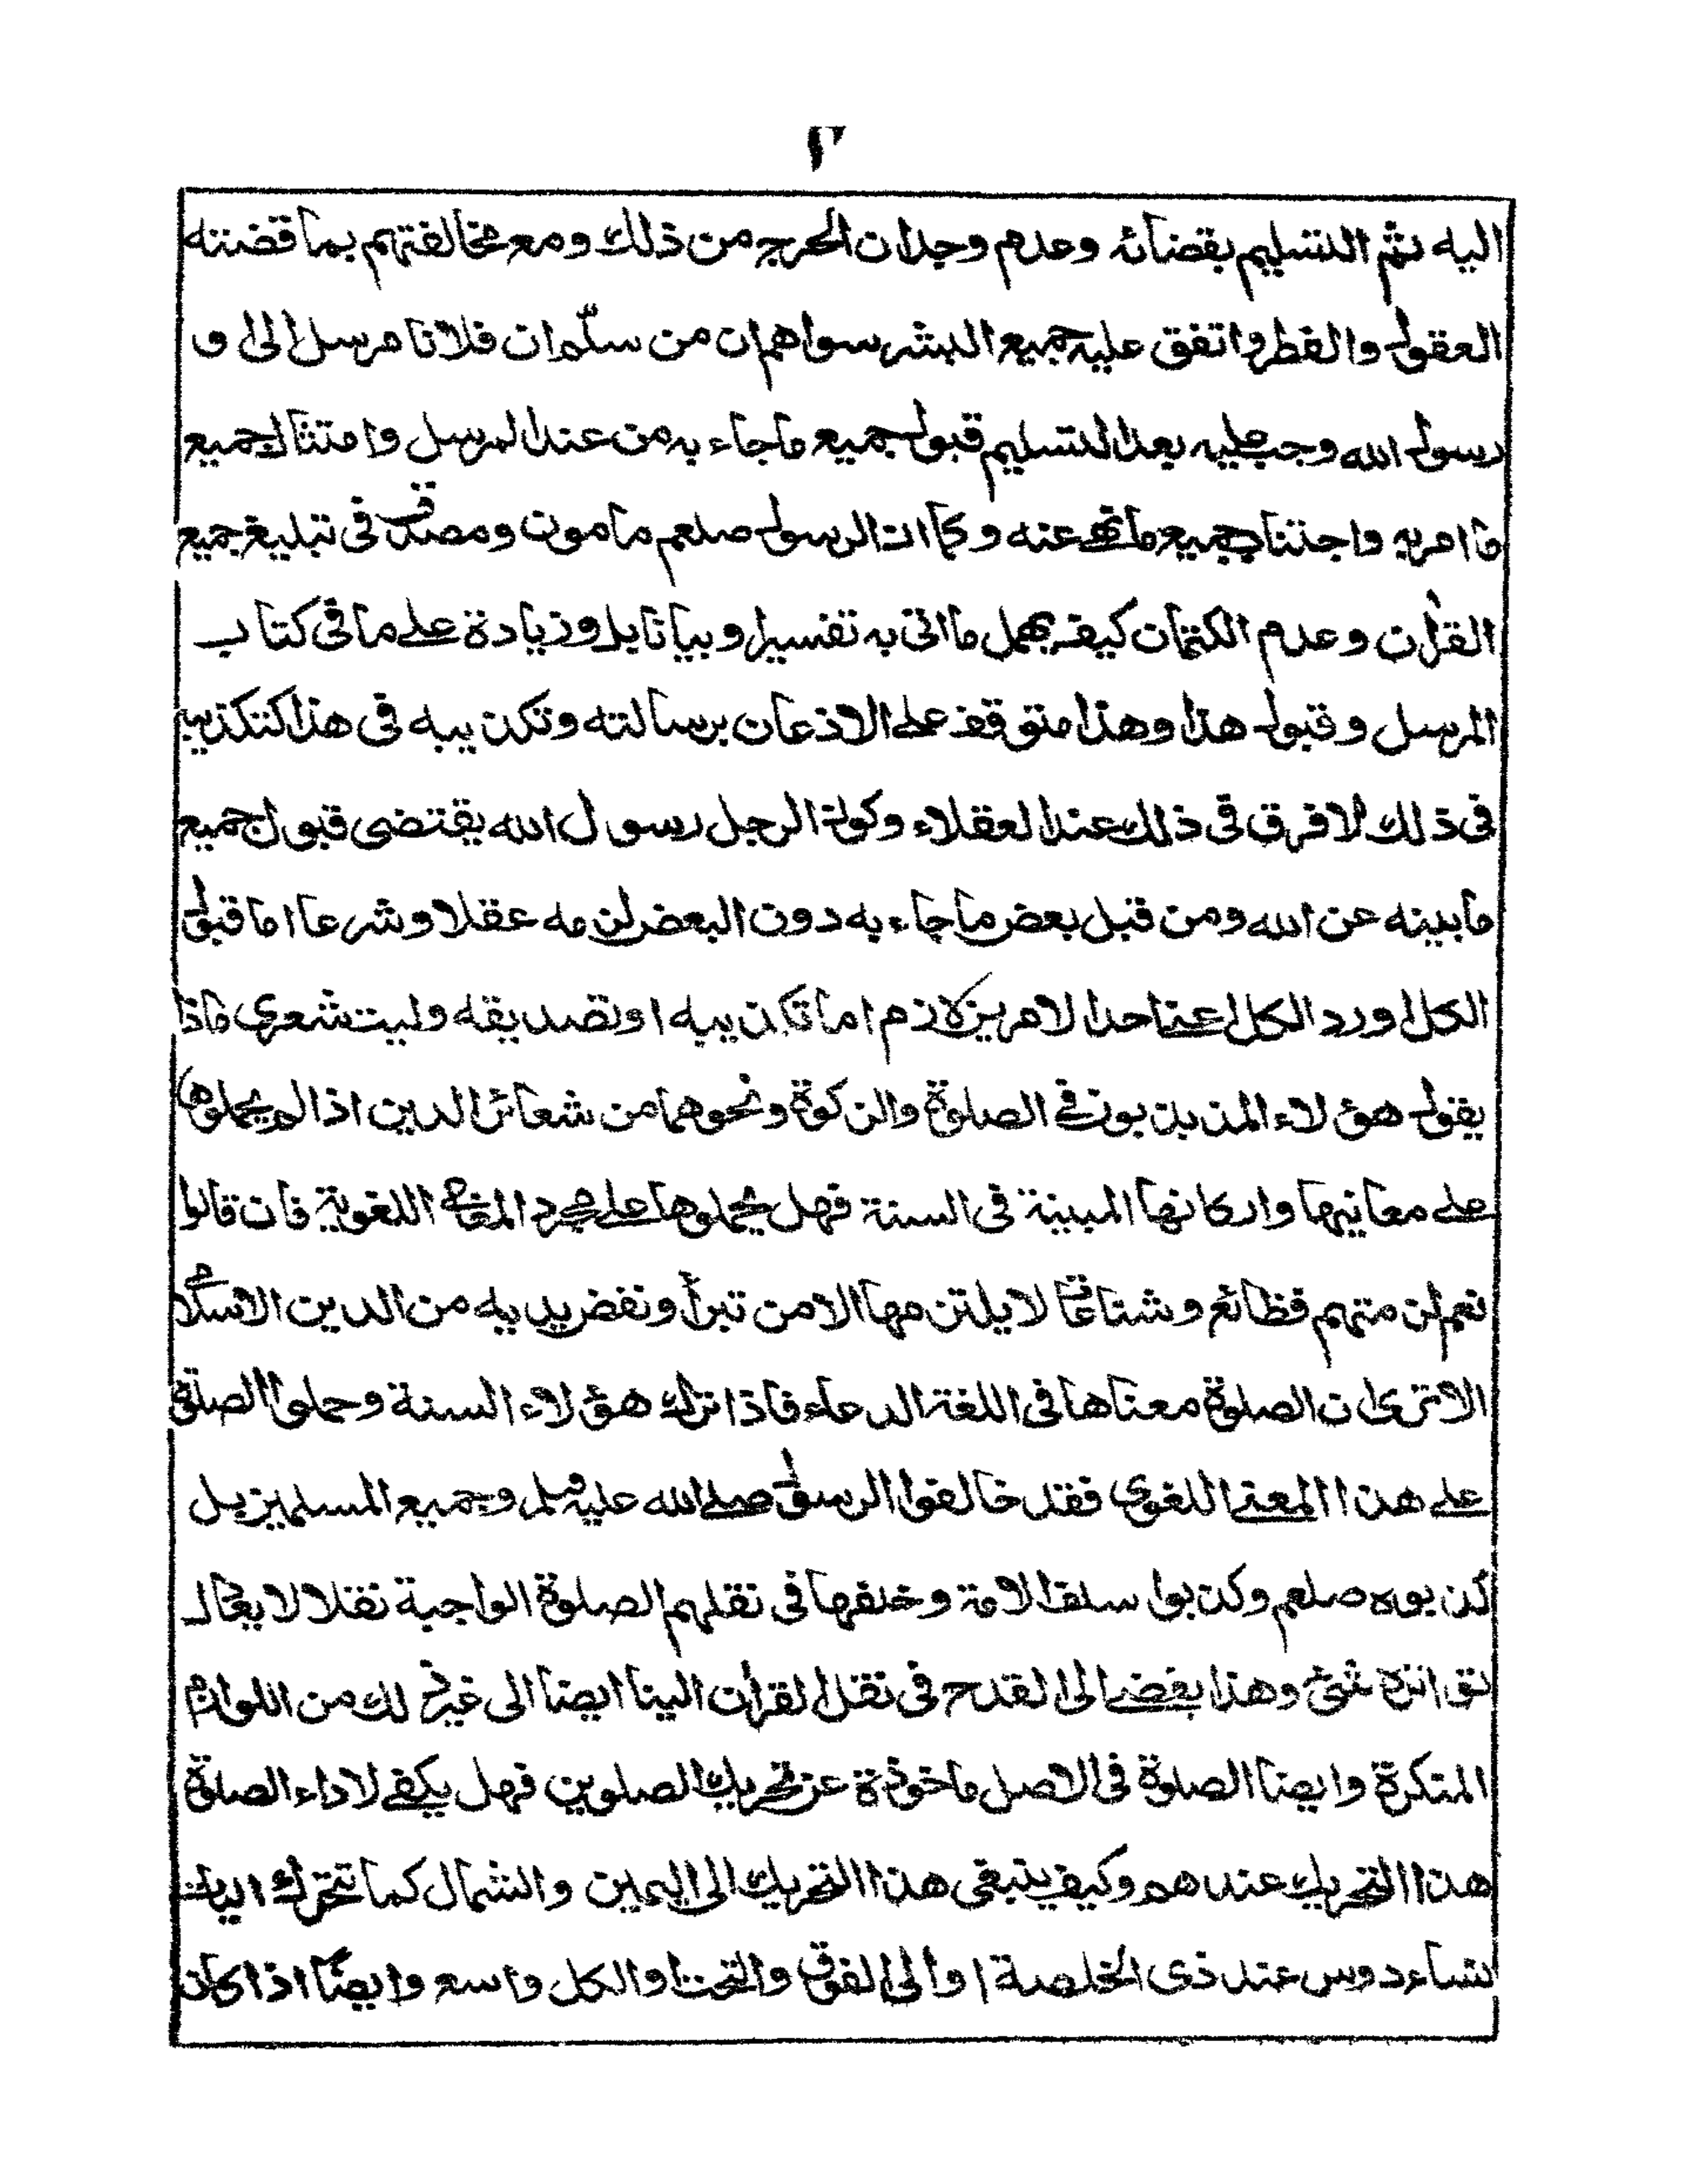 ٣
اليه ثم التسليم بقضائه وعدم وجدان الحرج من ذلك ومع مخالفتهم بما قضته
العقول والفطر واتفق عليه جميع البشر سواهم ان من سلّم ان فلانا مرسل الى و
رسول الله وجب عليه بعد التسليم قبول جميع ما جاء به من عند المرسل وامتثال جميع
ما امر به واجتناب جميع ما نهى عنه وكما ان الرسول صلعم مامون ومصدق فى تبليغ جميع
القرآن وعدم الكتمان كيف يهمل ما اتى به تفسيرا وبيانا بل وزيادة على ما فى كتاب
المرسل وقبول هذا وهذا متوقف على الاذعان برسالته وتكذيبه فى هذا كتكذيبه
فى ذلك لا فرق فى ذلك عند العقلاء وكون الرجل رسول الله يقتضى قبول جميع
ما بينه عن الله ومن قبل بعض ما جاء به دون البعض لزمه عقلا وشرعا اما قبول
الكل او رد الكل اعنى احد الامرين لازم اما تكذيبه او تصديقه وليت شعري ماذا
يقول هؤلاء المذبذبون فى الصلوة والزكوة ونحوهما من شعائر الدين اذا لم يحملوها
على معانيها واركانها المبينة فى السنة فهل يحملوها على مجرد المعانى اللغوية فان قالوا
نعم لزمتهم فظائع وشناعات لا يلتزمها الا من تبرأ ونفض يديه من الدين الاسلامى
الا ترى ان الصلوة معناها فى اللغة الدعاء فاذا ترك هؤلاء السنة وحملوا الصلوة
على هذا المعنى اللغوي فقد خالفوا الرسول صلى الله عليه وسلم وجميع المسلمين بل
كذبوه صلعم وكذبوا سلف الامة وخلفها فى نقلهم الصلوة الواجبة نقلا لا يعادل
تواتره شئ وهذا يفضى الى القدح فى نقل القرآن الينا ايضا الى غير ذلك من اللوازم
المنكرة وايضا الصلوة فى الاصل ماخوذة عن تحريك الصلوين فهل يكفى لاداء الصلوة
هذا التحريك عندهم وكيف ينبغى هذا التحريك الى اليمين والشمال كما تتحرك اليات
نساء دوس عند ذى الخلصة او الى الفوق والتحت او الكل واسع وايضا اذا كان